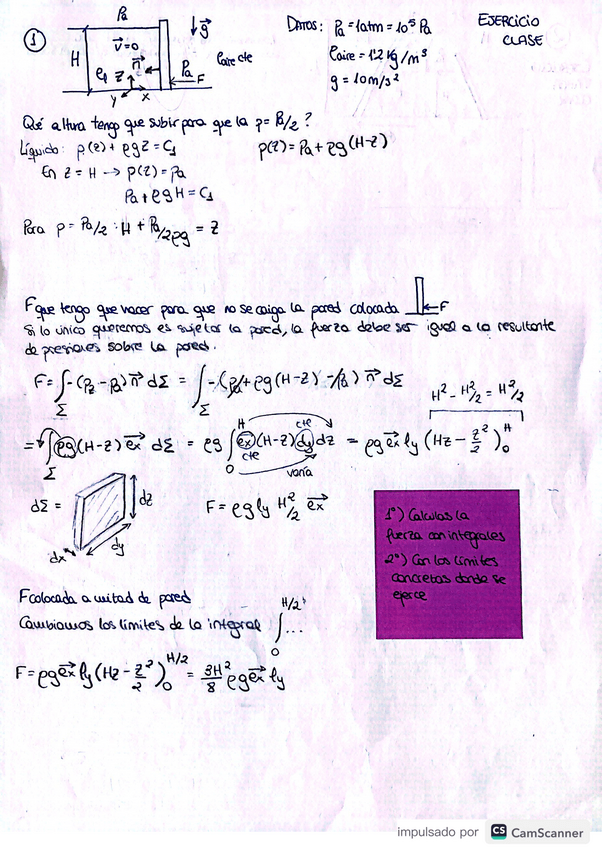 EJERCICIO
CLASE
①
Pa
DATOS: Pa = 1atm = 10⁵ Pa
ρaire = 1'2 kg/m³
g = 10 m/s²
H
v⃗=0
n⃗
ρ₁ z
y x
Pa
F
g⃗
ρaire cte
Qué altura tengo que subir para que la p = Pa/2 ?
Líquido: p(z) + ρgz = C₁ p(z) = Pa + ρg(H-z)
En z = H → p(z) = pa
Pa + ρgH = C₁
Para p = Pa/2 : H + Pa/2ρg = z
F que tengo que hacer para que no se caiga la pared colocada ←F
Si lo único queremos es sujetar la pared, la fuerza debe ser igual a la resultante
de presiones sobre la pared.
F = ∫Σ -(Pz - Pa) n⃗ dΣ = ∫Σ -(Pa + ρg(H-z) - Pa) n⃗ dΣ
H² - H²/2 = H²/2
= ∫Σ ρg (H-z) e⃗x dΣ = ρg ∫₀ᴴ e⃗x (H-z) dy dz = ρg e⃗x ly (Hz - z²/2)₀ᴴ
cte cte varía
dΣ = dz dy dx
F = ρg ly H²/2 e⃗x
1º) Calculas la
fuerza con integrales
2º) Con los límites
concretas donde se
ejerce
F colocada a mitad de pared
Cambiamos los límites de la integral ∫₀ᴴ/² ...
F = ρg e⃗x ly (Hz - z²/2)₀ᴴ/² = 3H²/8 ρg e⃗x ly
impulsado por CS CamScanner